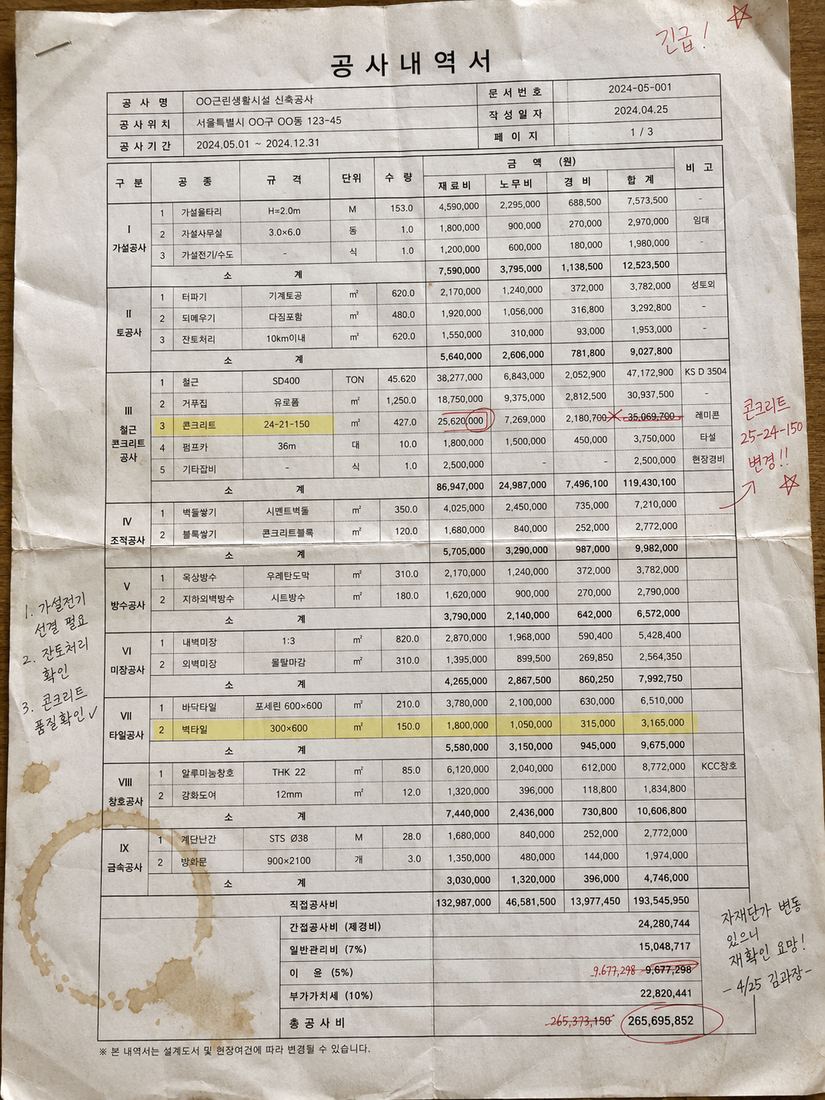 긴급! ☆
공사내역서
공 사 명 OO근린생활시설 신축공사 문서번호 2024-05-001
공사위치 서울특별시 OO구 OO동 123-45 작성일자 2024.04.25
공사기간 2024.05.01 ~ 2024.12.31 페 이 지 1 / 3
구 분 공 종 규 격 단위 수 량 금 액 (원) 비 고
재료비 노무비 경 비 합 계
I 가설공사
1 가설울타리 H=2.0m M 153.0 4,590,000 2,295,000 688,500 7,573,500 -
2 자설사무실 3.0×6.0 동 1.0 1,800,000 900,000 270,000 2,970,000 임대
3 가설전기/수도 - 식 1.0 1,200,000 600,000 180,000 1,980,000 -
소 계 7,590,000 3,795,000 1,138,500 12,523,500
II 토공사
1 터파기 기계토공 m³ 620.0 2,170,000 1,240,000 372,000 3,782,000 성토외
2 되메우기 다짐포함 m³ 480.0 1,920,000 1,056,000 316,800 3,292,800 -
3 잔토처리 10km이내 m³ 620.0 1,550,000 310,000 93,000 1,953,000 -
소 계 5,640,000 2,606,000 781,800 9,027,800
III 철근 콘크리트 공사
1 철근 SD400 TON 45.620 38,277,000 6,843,000 2,052,900 47,172,900 KS D 3504
2 거푸집 유로폼 m² 1,250.0 18,750,000 9,375,000 2,812,500 30,937,500 -
3 콘크리트 24-21-150 m³ 427.0 25,620,000 7,269,000 2,180,700 35,069,700 레미콘
4 펌프카 36m 대 10.0 1,800,000 1,500,000 450,000 3,750,000 타설
5 기타잡비 - 식 1.0 2,500,000 - - 2,500,000 현장경비
소 계 86,947,000 24,987,000 7,496,100 119,430,100
콘크리트
25-24-150
변경!!
☆
IV 조적공사
1 벽돌쌓기 시멘트벽돌 m² 350.0 4,025,000 2,450,000 735,000 7,210,000
2 블록쌓기 콘크리트블록 m² 120.0 1,680,000 840,000 252,000 2,772,000
소 계 5,705,000 3,290,000 987,000 9,982,000
V 방수공사
1 옥상방수 우레탄도막 m² 310.0 2,170,000 1,240,000 372,000 3,782,000
2 지하외벽방수 시트방수 m² 180.0 1,620,000 900,000 270,000 2,790,000
소 계 3,790,000 2,140,000 642,000 6,572,000
VI 미장공사
1 내벽미장 1:3 m² 820.0 2,870,000 1,968,000 590,400 5,428,400
2 외벽미장 몰탈마감 m² 310.0 1,395,000 899,500 269,850 2,564,350
소 계 4,265,000 2,867,500 860,250 7,992,750
1. 가설전기
선결 필요
2. 잔토처리
확인
3. 콘크리트
품질확인✓
VII 타일공사
1 바닥타일 포세린 600×600 m² 210.0 3,780,000 2,100,000 630,000 6,510,000
2 벽타일 300×600 m² 150.0 1,800,000 1,050,000 315,000 3,165,000
소 계 5,580,000 3,150,000 945,000 9,675,000
VIII 창호공사
1 알루미늄창호 THK 22 m² 85.0 6,120,000 2,040,000 612,000 8,772,000 KCC창호
2 강화도어 12mm m² 12.0 1,320,000 396,000 118,800 1,834,800
소 계 7,440,000 2,436,000 730,800 10,606,800
IX 금속공사
1 계단난간 STS Ø38 M 28.0 1,680,000 840,000 252,000 2,772,000
2 방화문 900×2100 개 3.0 1,350,000 480,000 144,000 1,974,000
소 계 3,030,000 1,320,000 396,000 4,746,000
직접공사비 132,987,000 46,581,500 13,977,450 193,545,950
간접공사비 (제경비) 24,280,744
일반관리비 (7%) 15,048,717
이 윤 (5%) 9,677,298 9,677,298
부가가치세 (10%) 22,820,441
총 공 사 비 265,373,150 265,695,852
자재단가 변동
있으니
재확인 요망!
- 4/25 김과장 -
※ 본 내역서는 설계도서 및 현장여건에 따라 변경될 수 있습니다.